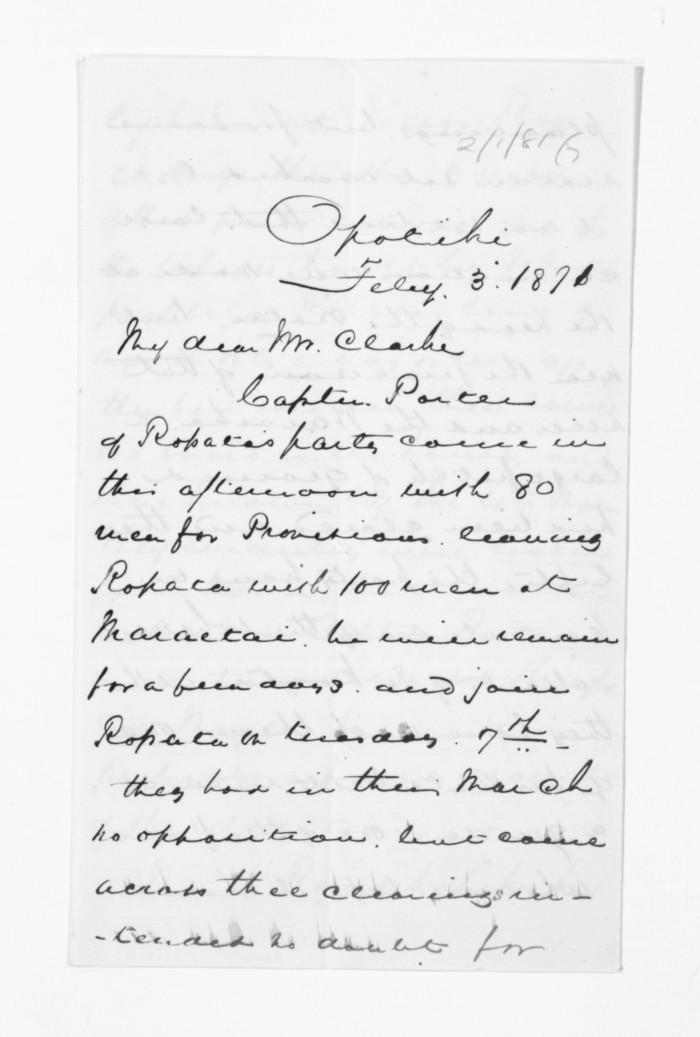 2/1/81/G
Opotiki
Feby. 3. 1871
My dear Mr. Clarke
Captn. Porter
of Ropata's party came in
this afternoon with 80
men for Provisions. leaving
Ropata with 100 men at
Maraetai. he will remain
for a few days. and join
Ropata on tuesday. 7th
they had in their March
no opposition. but came
across three clearings in-
-tended no doubt for